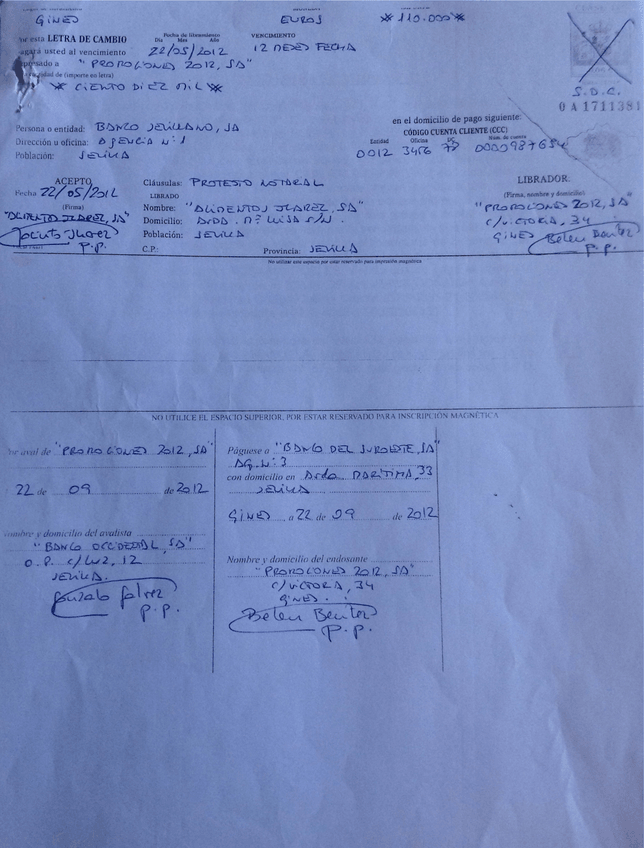 GINES EUROS *110.000*
LETRA DE CAMBIO Fecha de libramiento VENCIMIENTO
Día Mes Año
agará usted al vencimiento 22/05/2012 12 MESES FECHA
"PROMOCIONES 2012, SA"
* CIENTO DIEZ MIL *
S.D.C.
0 A 1711381
en el domicilio de pago siguiente:
Persona o entidad: BANCO SEVILLANO, SA CÓDIGO CUENTA CLIENTE (CCC)
Dirección u oficina: AGENCIA Nº 1 Entidad Oficina DC Núm. de cuenta
Población: SEVILLA 0012 3456 0000987654
ACEPTO Cláusulas: PROTESTO NOTARIAL LIBRADOR:
Fecha 22/05/2012 LIBRADO (Firma, nombre y domicilio)
(Firma) Nombre: "ALIMENTOS JUAREZ, SA" "PROMOCIONES 2012, SA"
"ALIMENTOS JUAREZ, SA" Domicilio: AVDA. Mª LUISA S/N. C/VICTORIA, 34
Jacinto Juarez Población: SEVILLA GINES Belen Benitez
P.P. C.P.: Provincia: SEVILLA P.P.
No utilizar este espacio por estar reservado para impresión magnética
NO UTILICE EL ESPACIO SUPERIOR, POR ESTAR RESERVADO PARA INSCRIPCIÓN MAGNÉTICA
aval de "PROMOCIONES 2012, SA"
22 de 09 de 2012
nombre y domicilio del avalista
"BANCO OCCIDENTAL, SA"
O.P. C/LUZ, 12
SEVILLA.
Gonzalo Galvez
P.P.
Páguese a "BANCO DEL SUROESTE, SA"
AG. Nº 3
con domicilio en Avda MARÍTIMA, 33
SEVILLA
GINES a 22 de 09 de 2012
Nombre y domicilio del endosante
"PROMOCIONES 2012, SA"
C/VICTORIA, 34
GINES.
Belen Benitez
P.P.